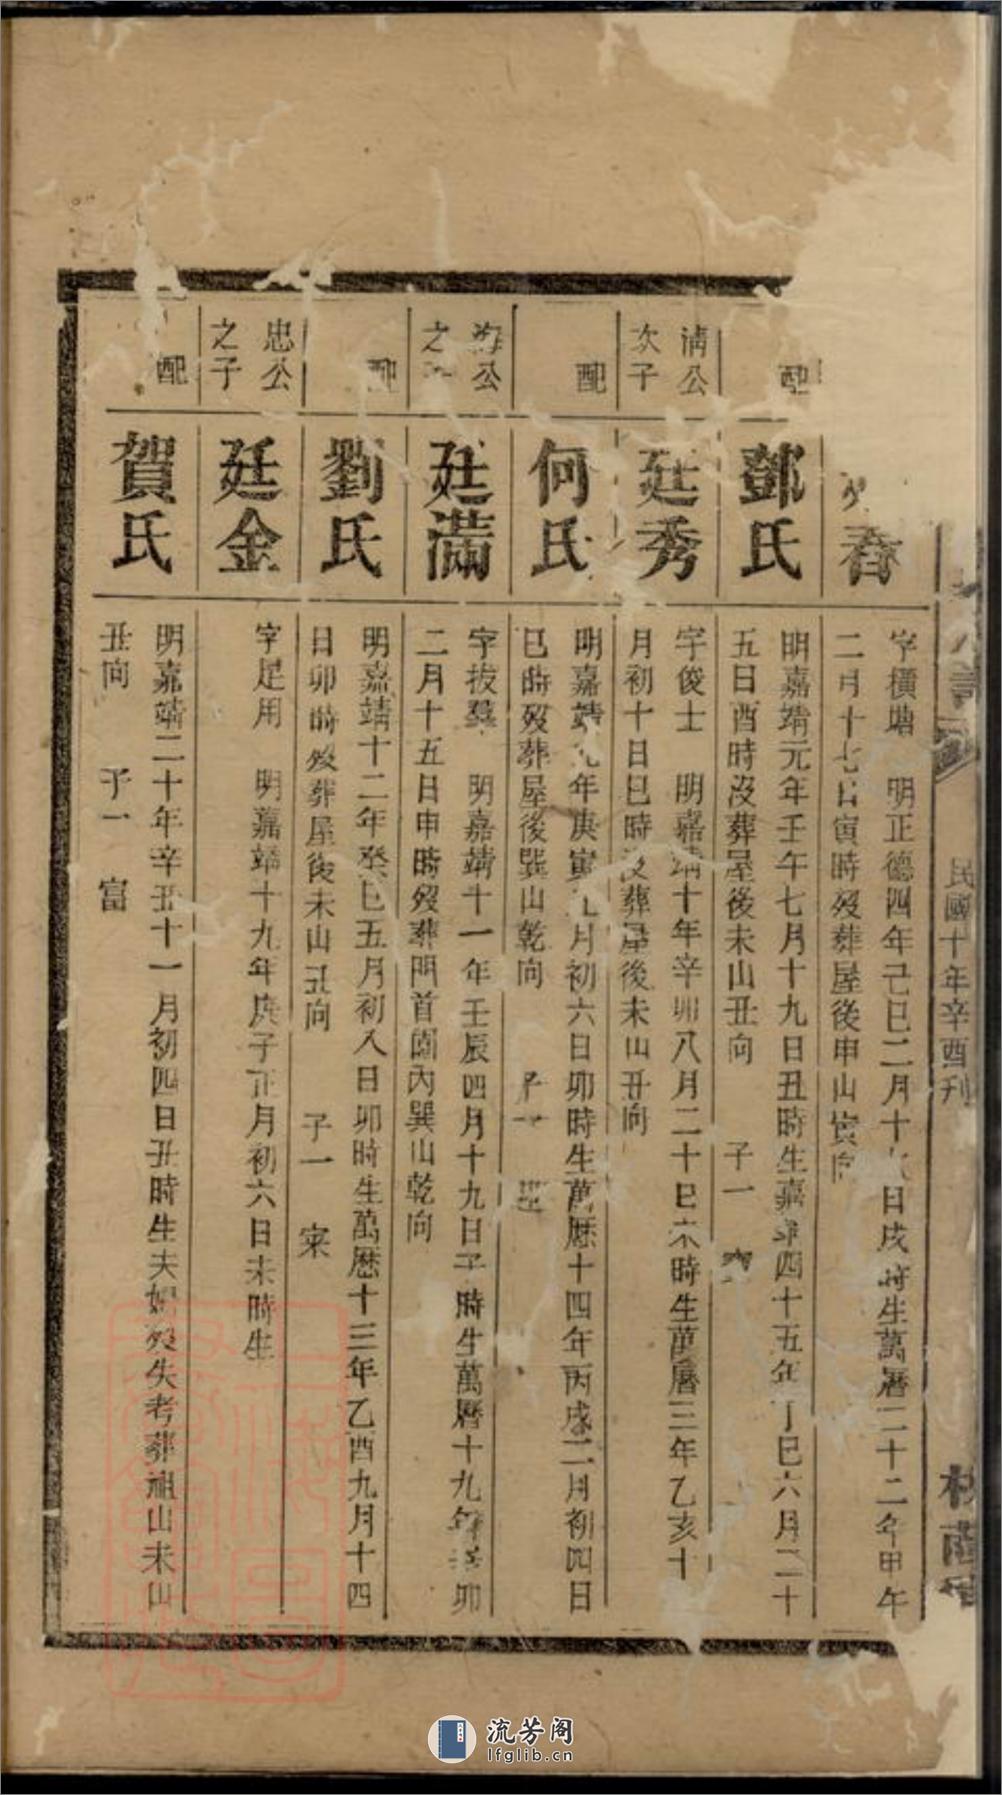 民國十年辛酉刊
春
字橫塘　明正德四年己巳二月十六日戌時生萬曆二十二年甲午
二月十七日寅時歿葬屋後申山寅向
配
鄧氏
明嘉靖元年壬午七月十九日丑時生嘉靖四十五年丁巳六月二十
五日酉時没葬屋後未山丑向　子一
清公
次子
廷秀
字俊士　明嘉靖十年辛卯八月二十日未時生萬曆三年乙亥十
月初十日巳時没葬屋後未山丑向
配
何氏
明嘉靖九年庚寅九月初六日卯時生萬歷十四年丙戌二月初四日
巳時歿葬屋後巽山乾向　子一
海公
之子
廷滿
字拔羣　明嘉靖十一年壬辰四月十九日子時生萬曆十九年辛卯
二月十五日申時歿葬門首園內巽山乾向
配
劉氏
明嘉靖十二年癸巳五月初八日卯時生萬歷十三年乙酉九月十四
日卯時歿葬屋後未山丑向　子一　宷
忠公
之子
廷金
字足用　明嘉靖十九年庚子正月初六日未時生
配
賀氏
明嘉靖二十年辛丑十一月初四日丑時生夫婦歿失考葬祖山未山
丑向　子一　富
流芳阁
lfglib.cn